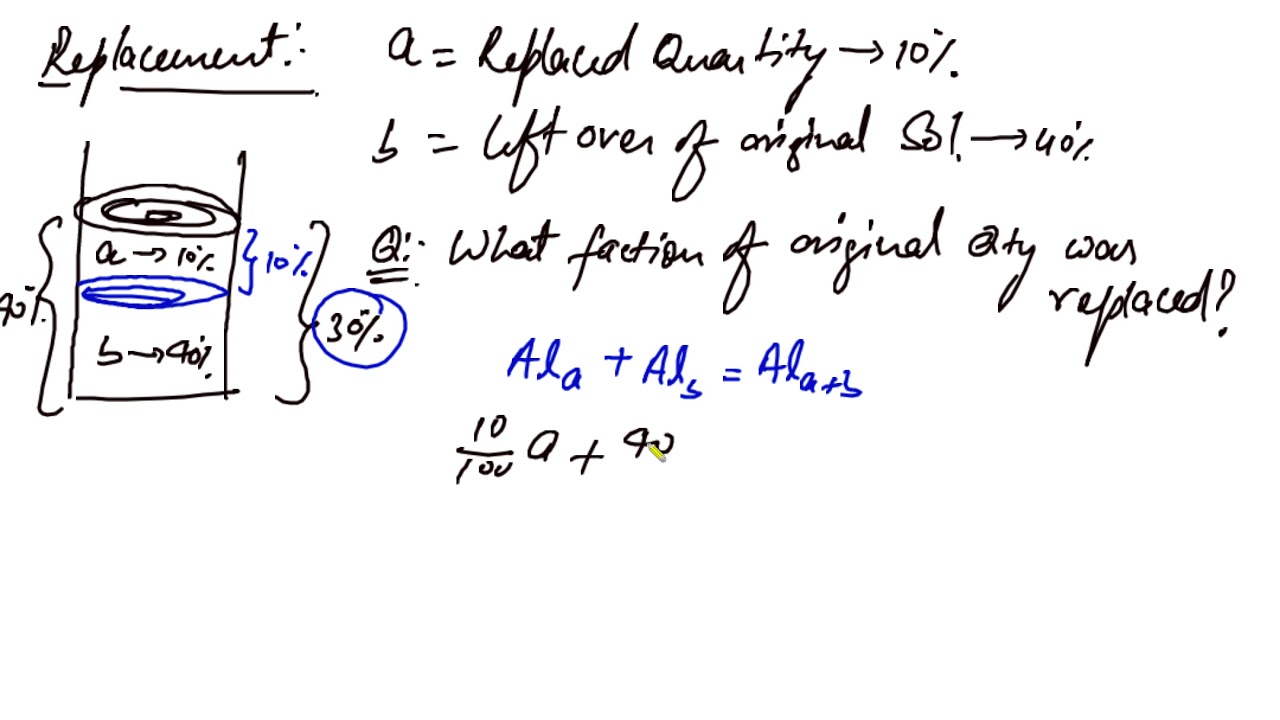 Replacement:
a = Replaced Quantity → 10%
b = left over of original Sol. → 40%
Q: What faction of original Qty was
replaced?
40%
a → 10%
10%
30%
b → 40%
Al_a + Al_b = Al_a+b
10/100 a + 40